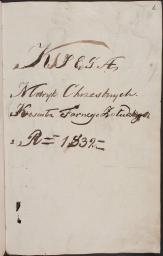 KSIĘGA
Metryk Chrzestnych
Kościoła Farnego
R= 1832=